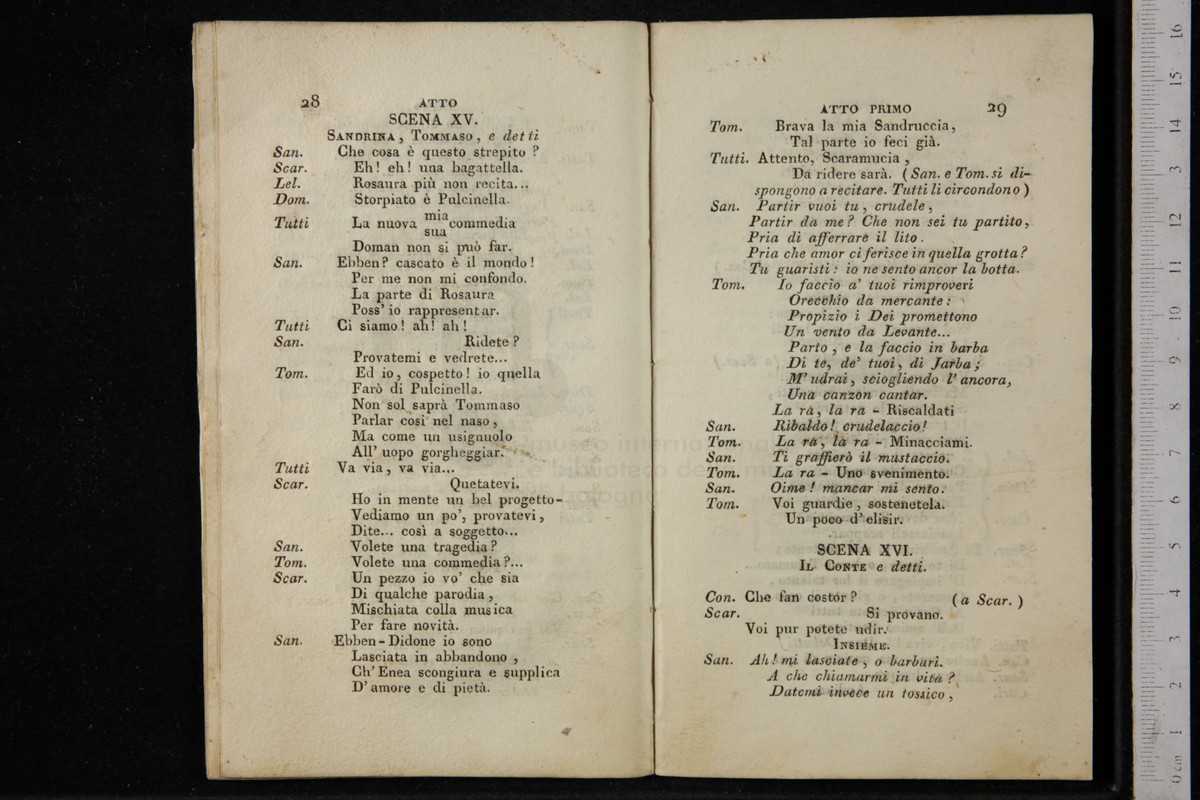 28
ATTO
SCENA XV.
SANDRINA, TOMMASO, e detti
San. Che cosa è questo strepito ?
Scar. Eh! eh! una bagattella.
Lel. Rosaura più non recita...
Dom. Storpiato è Pulcinella.
Tutti La nuova mia sua commedia
Doman non si può far.
San. Ebben? cascato è il mondo!
Per me non mi confondo.
La parte di Rosaura
Poss' io rappresentar.
Tutti Ci siamo! ah! ah!
San. Ridete?
Provatemi e vedrete...
Tom. Ed io, cospetto! io quella
Farò di Pulcinella.
Non sol saprà Tommaso
Parlar così nel naso,
Ma come un usignuolo
All' uopo gorgheggiar.
Tutti Va via, va via...
Scar. Quetatevi.
Ho in mente un bel progetto-
Vediamo un po', provatevi,
Dite... così a soggetto...
San. Volete una tragedia?
Tom. Volete una commedia?...
Scar. Un pezzo io vo' che sia
Di qualche parodia,
Mischiata colla musica
Per fare novità.
San. Ebben-Didone io sono
Lasciata in abbandono ,
Ch' Enea scongiura e supplica
D' amore e di pietà.
ATTO PRIMO 29
Tom. Brava la mia Sandruccia,
Tal parte io feci già.
Tutti. Attento, Scaramucia ,
Da ridere sarà. (San. e Tom. si di-
spongono a recitare. Tutti li circondono)
San. Partir vuoi tu, crudele,
Partir da me? Che non sei tu partito,
Pria di afferrare il lito.
Pria che amor ci ferisce in quella grotta?
Tu guaristi: io ne sento ancor la botta.
Tom. Io faccio a' tuoi rimproveri
Orecchio da mercante:
Propizio i Dei promettono
Un vento da Levante...
Parto, e la faccio in barba
Di te, de' tuoi, di Jarba;
M' udrai, sciogliendo l' ancora,
Una canzon cantar.
La rà, la ra - Riscaldati
San. Ribaldo! crudelaccio!
Tom. La ra, là ra - Minacciami.
San. Ti graffierò il mustaccio.
Tom. La ra - Uno svenimento.
San. Oime! mancar mi sento.
Tom. Voi guardie, sostenetela.
Un poco d' elisir.
SCENA XVI.
IL CONTE e detti.
Con. Che fan costor? (a Scar.)
Scar. Si provano.
Voi pur potete udir.
INSIEME.
San. Ah! mi lasciate, o barbari.
A che chiamarmi in vita?
Datemi invece un tossico,